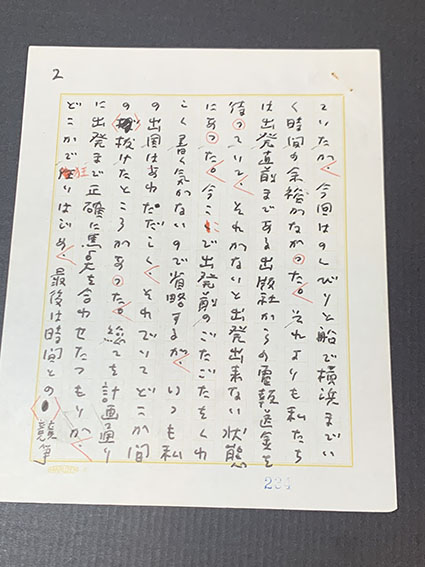 2
ていたが、今回はのんびりと船で横浜までい
く時間の余裕がなかった。それよりも私たち
は出発直前まである出版社からの電報送金を
待っていて、それがないと出発出来ない状態
にあった。今ここで出発前のごたごたをくわ
しく書く気がないので省略するが、いつも私
の出国はあわただしく、それでいてどこか間
の抜けたところがあった。総てを計画通り
に出発まで正確に馬を合わせたつもりが、
どこかで狂りはじめ、最後は時間との競争
234